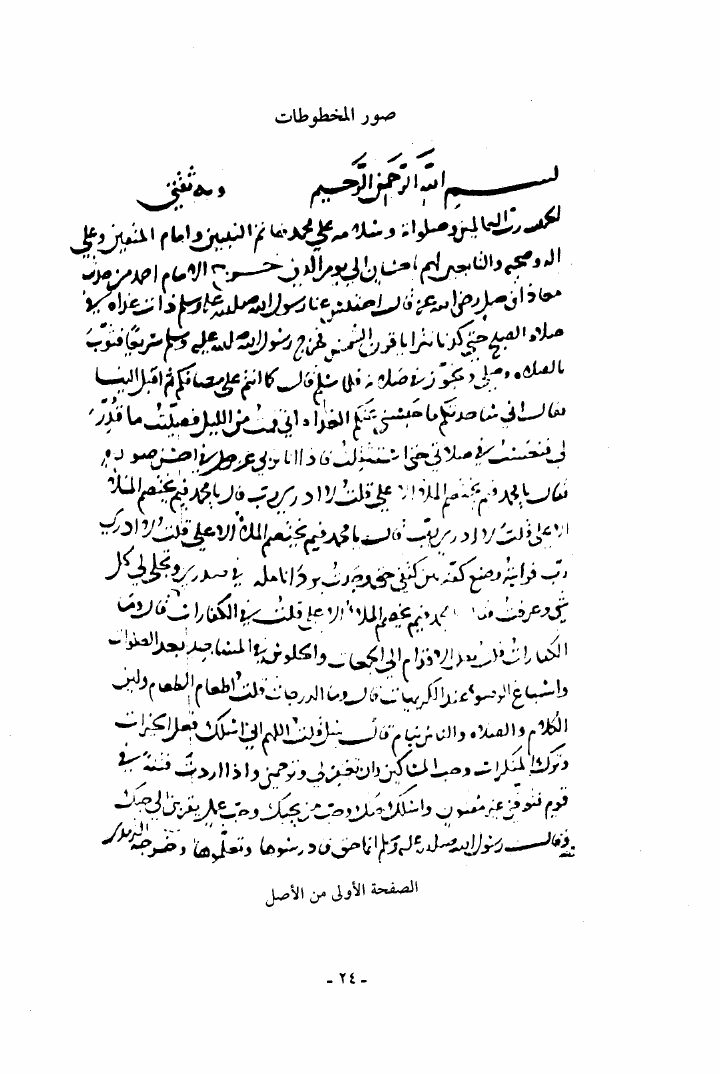 صور المخطوطات
بسم الله الرحمن الرحيم وبه ثقتي
الحمد رب العالمين وصلواته وسلامه على محمد خاتم النبيين وامام المتقين وعلى
اله وصحبه والتابعين لهم باحسان الى يوم الدين خرج الامام احمد من حديث
معاذ بن جبل رضي الله عنه قال احتبس عنا رسول الله صلى الله عليه وسلم ذات غداه في
صلاه الصبح حتى كدنا نترايا قرن الشمس فخرج رسول الله صلى الله عليه وسلم سريعا فثوب
بالصلاه وصلى وتجوز في صلاته فلما سلم قال كما انتم على مصافكم ثم اقبل الينا
فقال اني ساحدثكم ما حبسني عنكم الغداه اني قمت من الليل فصليت ما قدر
لي فنعست في صلاتي حتى استثقلت فاذا انا بربي عز وجل في احسن صوره
فقال يا محمد فيم يختصم الملا الاعلى قلت لا ادري رب قال يا محمد فيم يختصم الملا
الاعلى قلت لا ادري رب قال يا محمد فيم يختصم الملا الاعلى قلت لا ادري
رب فرايته وضع كفه بين كتفي حتى وجدت برد انامله في صدري وتجلى لي كل
شي وعرفت محمد فيم يختصم الملا الاعلى قلت في الكفارات قال وما
الكفارات قلت نقل الاقدام الى الجمعات والجلوس في المساجد بعد الصلوات
واسباغ الوضوء عند الكريهات قال وما الدرجات قلت اطعام الطعام ولين
الكلام والصلاه والناس نيام قال سل قلت اللهم اني اسلك فعل الخيرات
وترك المنكرات وحب المساكين وان تغفر لي وترحمني واذا اردت فتنة في
قوم فتوفني غير مفتون واسلك حبك وحب من يحبك وحب عمل يقربني الى حبك
وقال رسول الله صلى الله عليه وسلم انها حق فادرسوها وتعلموها وخرجه الترمذي
الصفحة الأولى من الأصل
- ٢٤ -